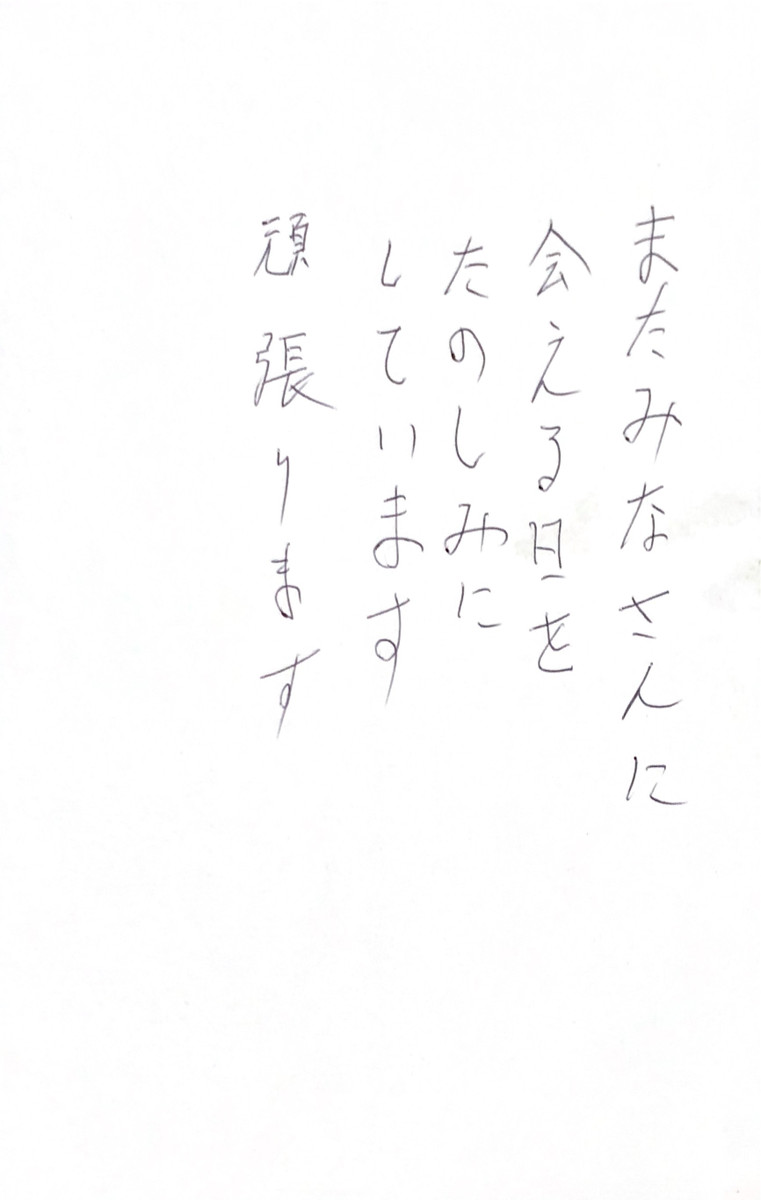 またみなさんに
会える日を
たのしみに
しています
頑張ります